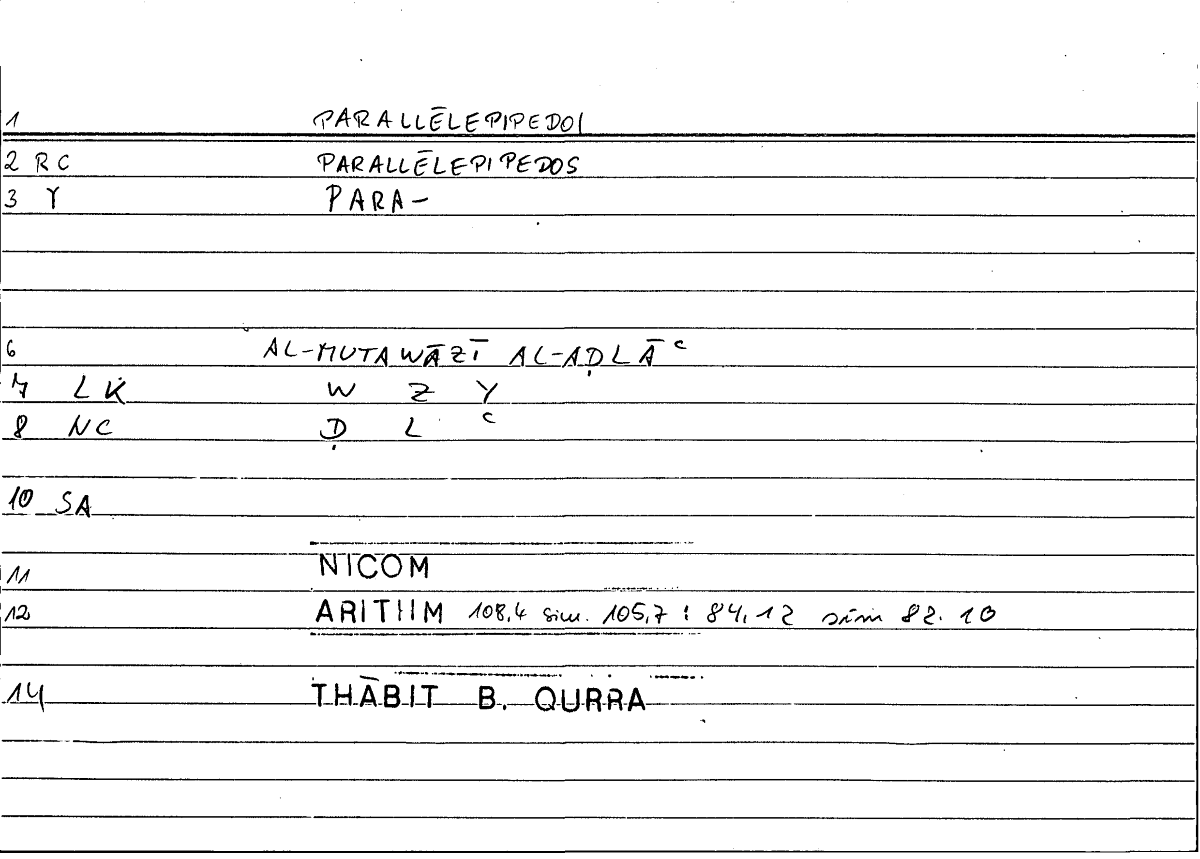 1 PARALLĒLEPIPEDOI
2 RC PARALLĒLEPIPEDOS
3 Y PARA-
6 AL-MUTAWĀZĪ AL-AḌLĀᶜ
7 LK W Z Y
8 NC Ḍ L ᶜ
10 SA
11 NICOM
12 ARITHM 108,4 sim. 105,7 : 84,12 sim 82.10
14 THĀBIT B. QURRA